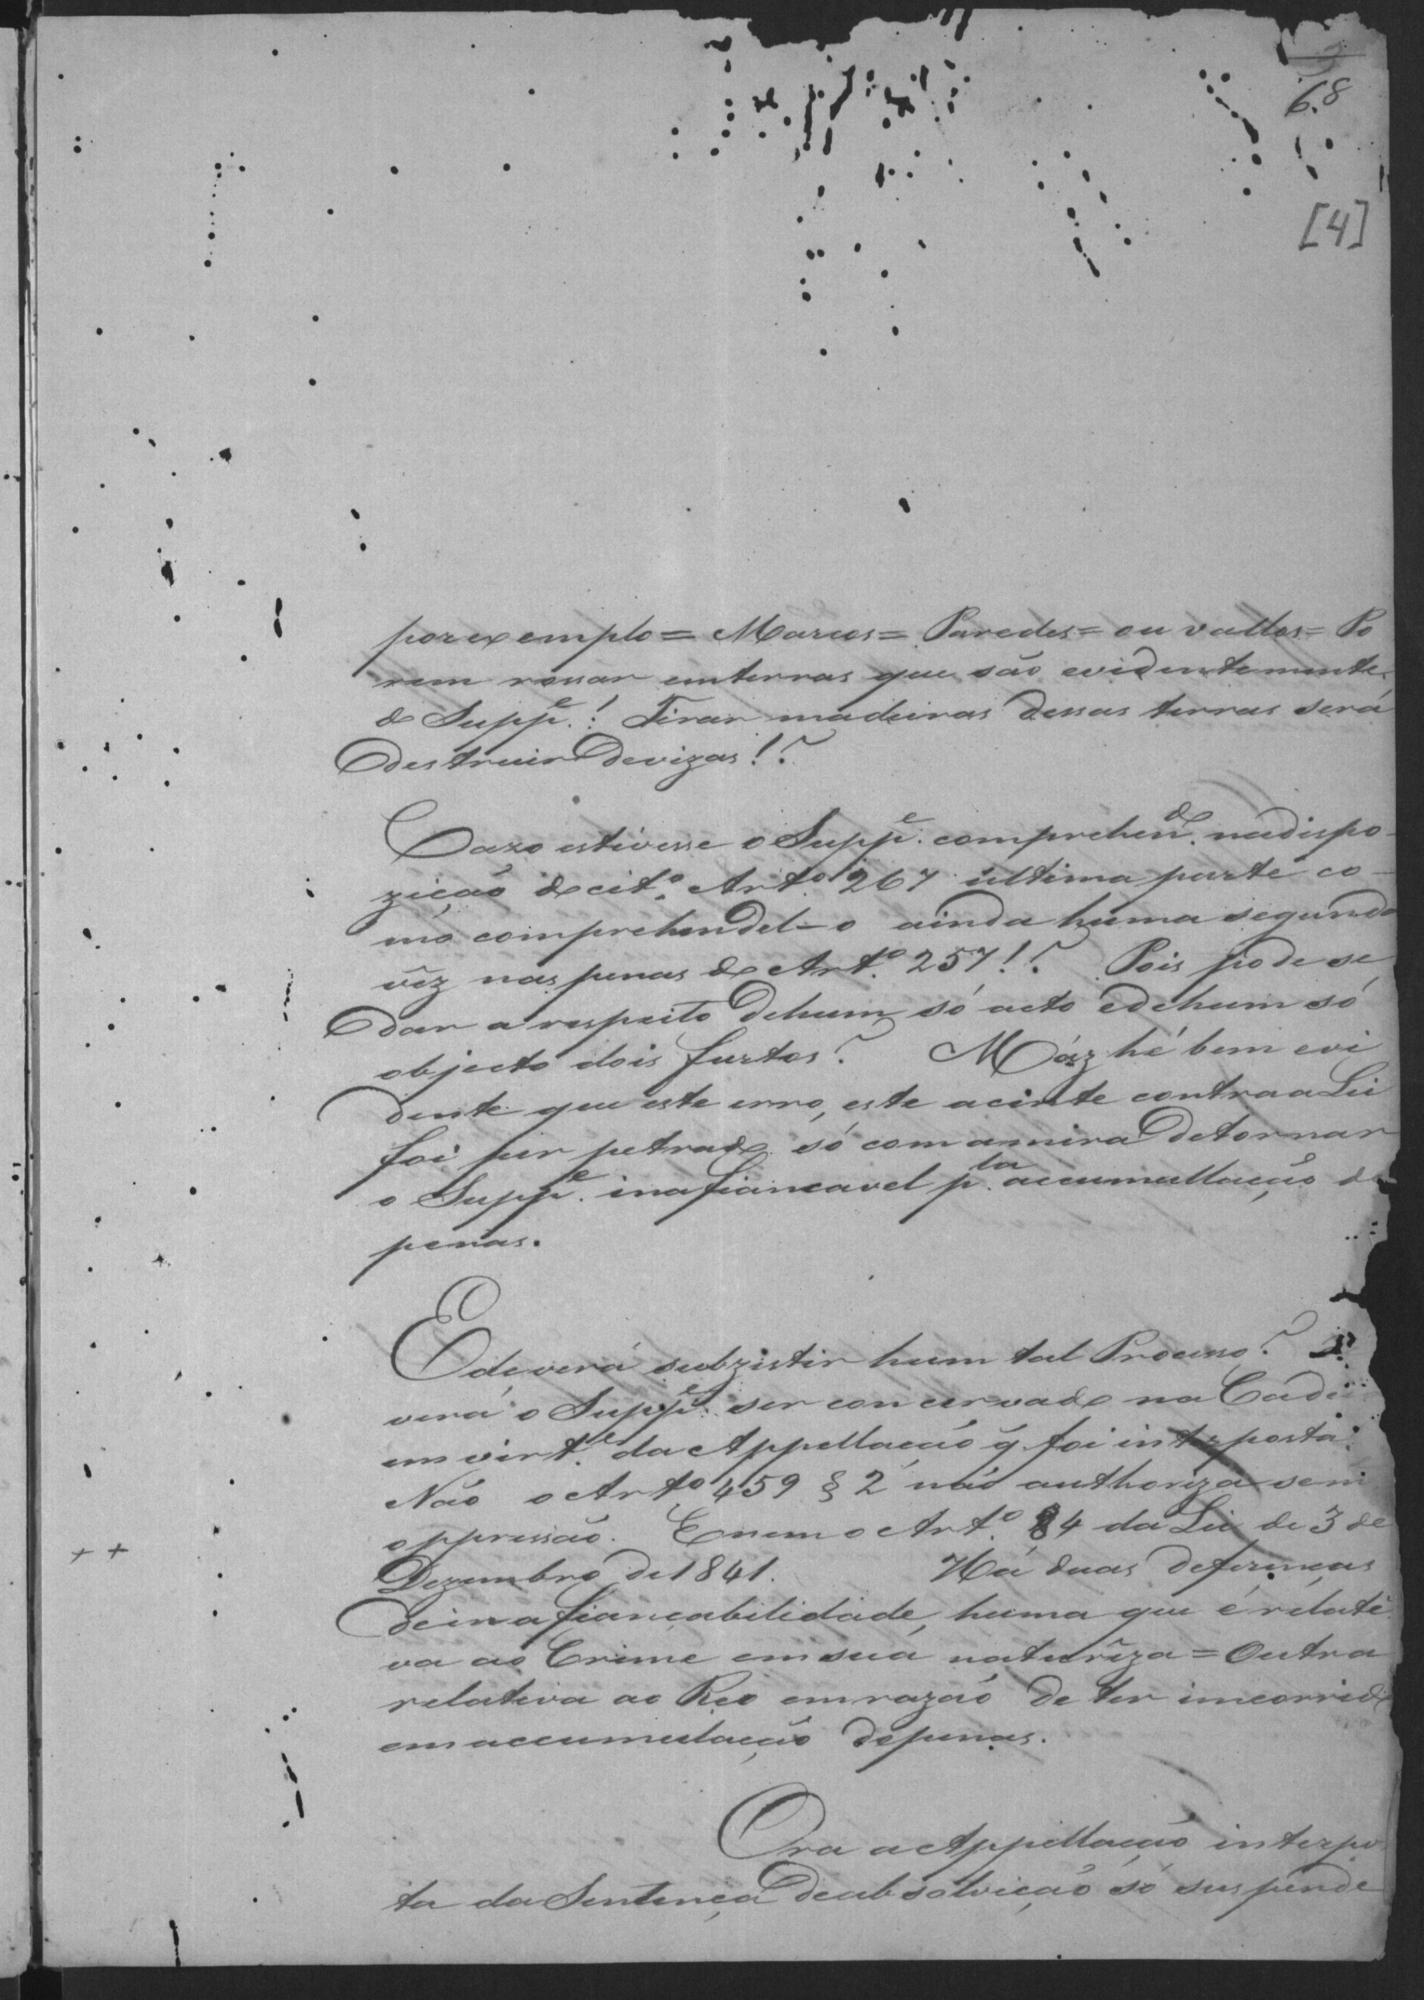 6.8
[4]
por exemplo = Marcos = Paredes = ou vallos = Po
rem rossar em terras que são evidentemente
do Supp.e! Tirar madeiras dessas terras será
destruir devizas!?
Cazo estivesse o Supp.e comprehen.do na dispo-
zição do cit.o Art.o 267 ultima parte co-
mo comprehendel-o ainda huma segunda
vêz nas penas do Art.o 257!? Pois pode se
dar a respeito de hum só acto e de hum só
objecto dois furtos? Máz hé bem evi
dente que este erro, este acinte contra a Lei
foi perpetrado só com a mira de tornar
o Supp.e inafiancavel p.la accumullação de
penas.
E deverá subzistir hum tal Processo? De
verá o Supp.e ser concervado na Cadei
em virt.e da Appellação q̃ foi interposta?
Não o Art.o 459 § 2 não authoriza sem.
oppressão. E nem o Art.o 84 da Lei de 3 de
Dezembro de 1841. Há duas deferenças
de inafiançabilidade, huma que é relati
va ao Crime em sua naturêza = Outra
relativa ao Reo em razaõ de ter incorrido
em accumulação de penas.
Ora a Appellação interpo
ta da Sentença de absolvição só suspende
++